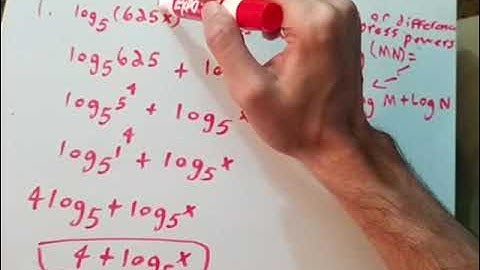 1. log₅(625x)
log₅625 +
log₅5⁴ + log₅x
log₅1⁴ + log₅x
4log₅ + log₅x
4 + log₅x
EXPO
or difference
powers
(MN)
M + Log N